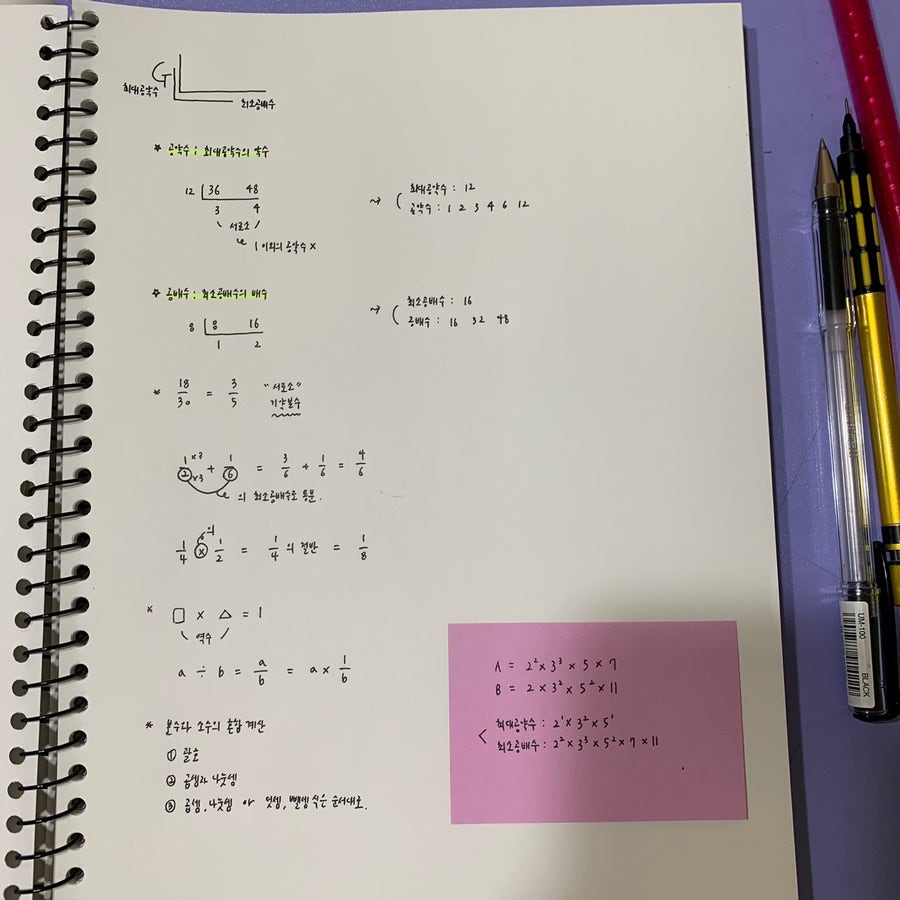 G L
최대공약수
최소공배수
* 공약수 : 최대공약수의 약수
12 36 48
3 4
서로소
1 이외의 공약수 x
→ 최대공약수 : 12
공약수 : 1 2 3 4 6 12
* 공배수 : 최소공배수의 배수
8 8 16
1 2
→ 최소공배수 : 16
공배수 : 16 32 48
* 18/30 = 3/5 "서로소"
기약분수
1/2 ×3 ×3 + 1/6 = 3/6 + 1/6 = 4/6
의 최소공배수로 통분.
의
1/4 × 1/2 = 1/4 의 절반 = 1/8
* □ × △ = 1
역수
a ÷ b = a/b = a × 1/b
* 분수와 소수의 혼합 계산
① 괄호
② 곱셈과 나눗셈
③ 곱셈, 나눗셈 아 덧셈, 뺄셈 식은 순서대로.
A = 2² × 3³ × 5 × 7
B = 2 × 3² × 5² × 11
< 최대공약수 : 2¹ × 3² × 5¹
최소공배수 : 2² × 3³ × 5² × 7 × 11
UM-100
BLACK